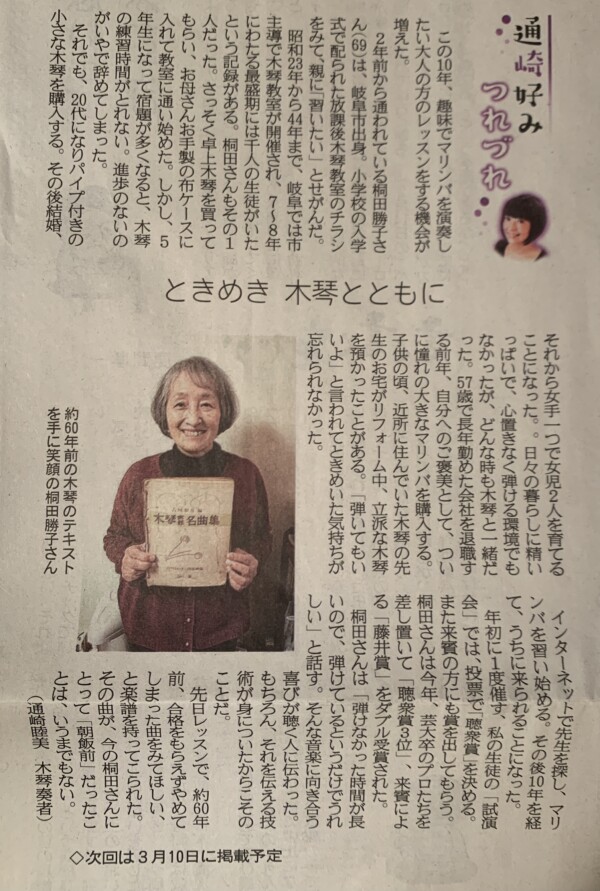 通崎好み
つれづれ
この10年、趣味でマリンバを演奏し
たい大人の方のレッスンをする機会が
増えた。
２年前から通われている桐田勝子さ
ん(69)は、岐阜市出身。小学校の入学
式で配られた放課後木琴教室のチラシ
をみて、親に「習いたい」とせがんだ。
昭和23年から44年まで、岐阜では市
主導で木琴教室が開催され、７～８年
にわたる最盛期には千人の生徒がいた
という記録がある。桐田さんもその１
人だった。さっそく卓上木琴を買って
もらい、お母さんお手製の布ケースに
入れて教室に通い始めた。しかし、５
年生になって宿題が多くなると、木琴
の練習時間がとれない。進歩のないの
がいやで辞めてしまった。
それでも、20代になりパイプ付きの
小さな木琴を購入する。その後結婚、
ときめき 木琴とともに
それから女手一つで女児２人を育てる
ことになった。。日々の暮らしに精い
っぱいで、心置きなく弾ける環境でも
なかったが、どんな時も木琴と一緒だ
った。57歳で長年勤めた会社を退職す
る前年、自分へのご褒美として、つい
に憧れの大きなマリンバを購入する。
子供の頃、近所に住んでいた木琴の先
生のお宅がリフォーム中、立派な木琴
を預かったことがある。「弾いてもい
いよ」と言われてときめいた気持ちが
忘れられなかった。
木琴名曲集
約60年前の木琴のテキスト
を手に笑顔の桐田勝子さん
インターネットで先生を探し、マリ
ンバを習い始める。その後10年を経
て、うちに来られることになった。
年初に１度催す、私の生徒の「試演
会」では、投票で「聴衆賞」を決める。
また来賓の方にも賞を出してもらう。
桐田さんは今年、芸大卒のプロたちを
差し置いて「聴衆賞３位」、来賓によ
る「藤井賞」をダブル受賞された。
桐田さんは「弾けなかった時間が長
いので、弾けているというだけでうれ
しい」と話す。そんな音楽に向き合う
喜びが聴く人に伝わった。
もちろん、それを伝える技
術が身についたからこその
ことだ。
先日レッスンで、約60年
前、合格をもらえずやめて
しまった曲をみてほしい、
と楽譜を持ってこられた。
その曲が、今の桐田さんに
とって「朝飯前」だったこ
とは、いうまでもない。
（通崎睦美 木琴奏者）
◇次回は３月10日に掲載予定